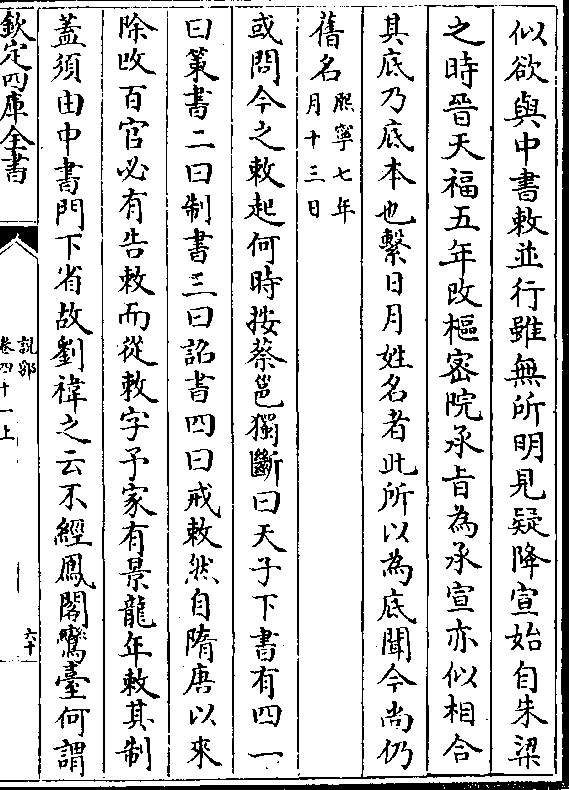 似欲與中書敕並行雖無所明見疑降宣始自朱梁
之時晉天福五年改樞密院承旨為承宣亦似相合
其底乃底本也繫日月姓名者此所以為底聞今尚仍
舊名熙寧七年
月十三日
或問今之敕起何時按蔡邕獨斷曰天子下書有四一
曰策書二曰制書三曰詔書四曰戒敕然自隋唐以來
除改百官必有告敕而從敕字予家有景龍年敕其制
蓋須由中書門下省故劉禕之云不經鳳閣鸞臺何謂
欽定四庫全書
說郛
卷四十一上
六十